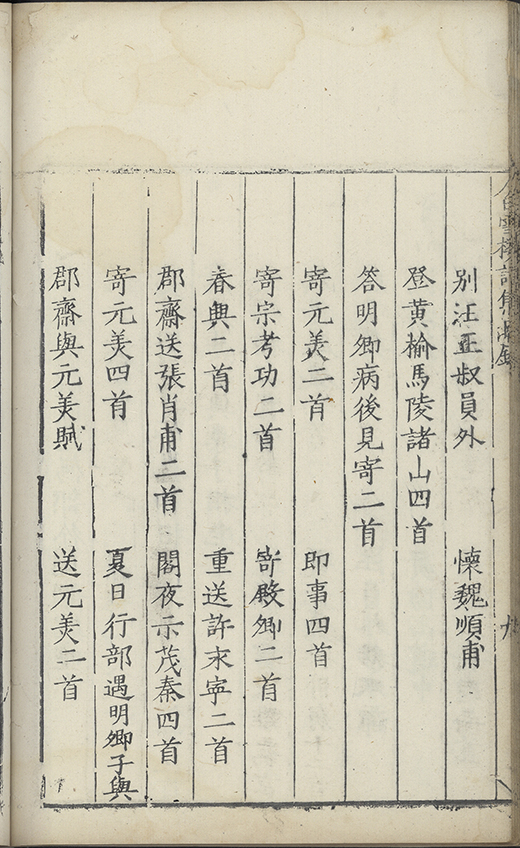 別汪正叔員外　懷魏順甫
登黃榆馬陵諸山四首
答明卿病後見寄二首
寄元美二首　即事四首
寄宗考功二首　寄殿卿二首
春興二首　重送許永寧二首
郡齋送張肖甫二首　閣夜示茂秦四首
寄元美四首　夏日行部遇明卿子與
郡齋與元美賦　送元美二首